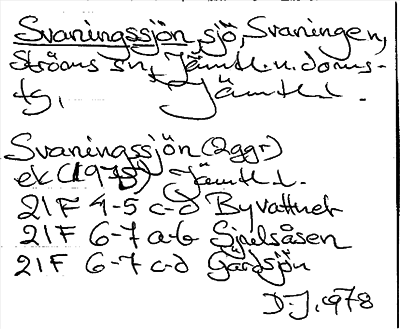 Svaningssjön, sjö, Svaningen,
Ströms sn, Jämtl. n. doms-
g, Jämtl.
Svaningssjön (2ggr)
ek (1978) Jämtl. L.
21F 4-5 c-d Byvattnet
21F 6-7 a-b Sjulsåsen
21F 6-7 c-d Gärdsjön
D-J. 1978